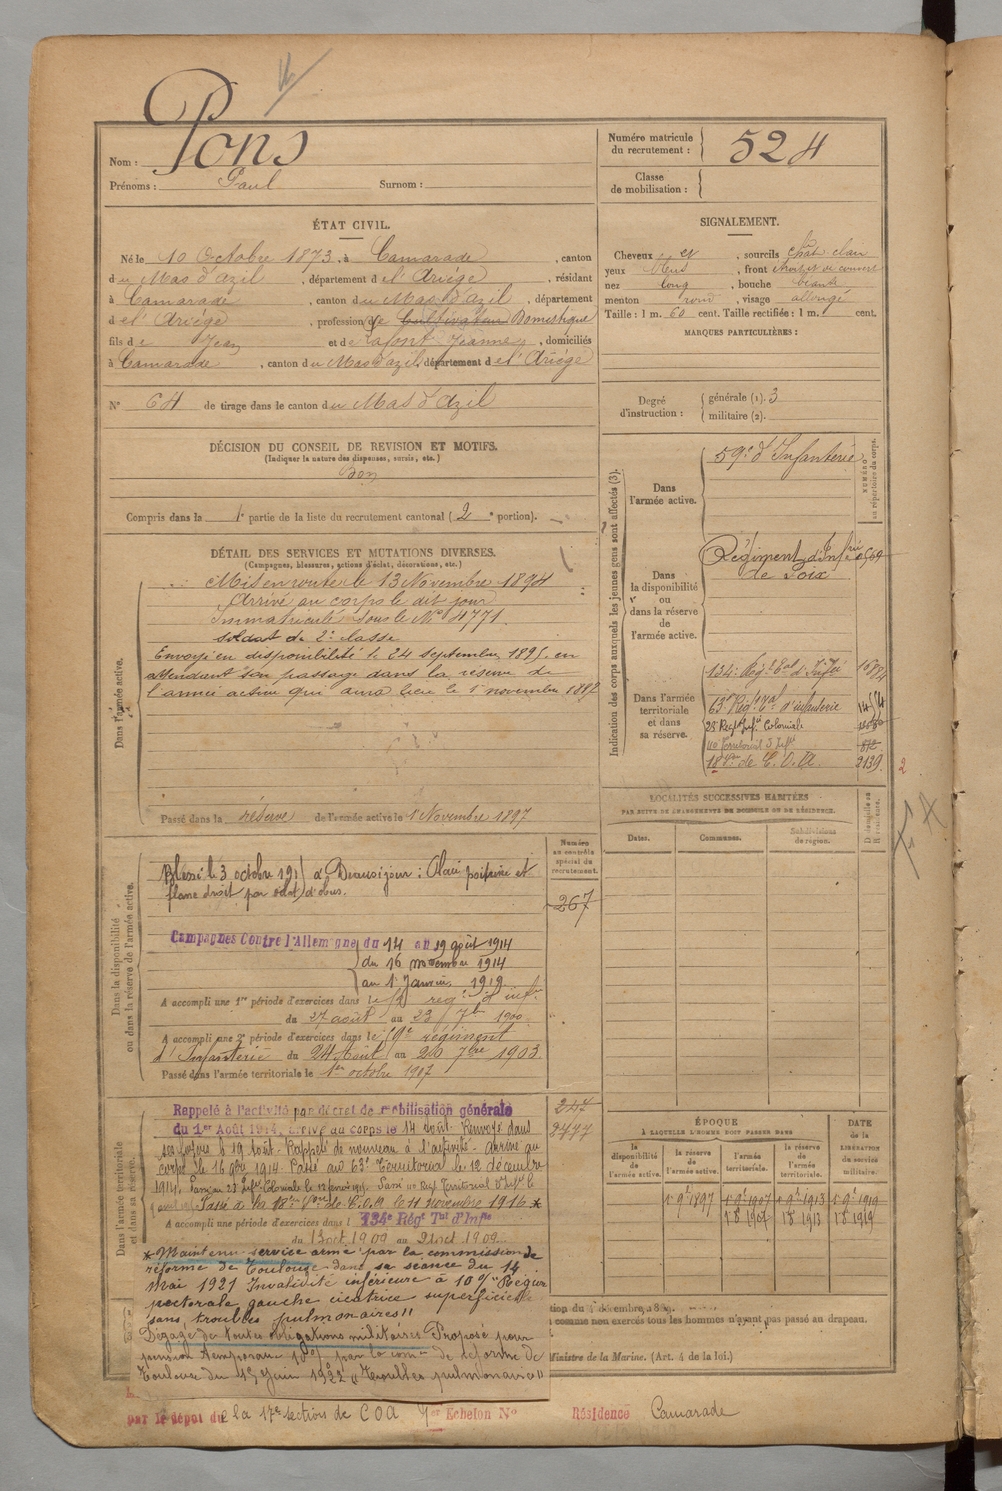 Nom : Pons
Prénoms : Paul Surnom :
Numéro matricule
du recrutement : 524
Classe
de mobilisation :
ÉTAT CIVIL.
Né le 10 Octobre 1873, à Camarade, canton
du Mas d'azil, département de l'Ariège, résidant
à Camarade, canton du Mas d'azil, département
de l'Ariège, profession de Cultivateur Domestique
fils de Jean et de Lafont Jeanne, domiciliés
à Camarade, canton du Mas d'azil, département de l'Ariège
N° 64 de tirage dans le canton du Mas d'Azil
DÉCISION DU CONSEIL DE REVISION ET MOTIFS.
(Indiquer la nature des dispenses, sursis, etc.)
Bon
Compris dans la 1e partie de la liste du recrutement cantonal (2e portion).
SIGNALEMENT.
Cheveux et, sourcils chât clair
yeux bleus, front étroit et couvert
nez long, bouche béante
menton rond, visage allongé
Taille : 1 m. 60 cent. Taille rectifiée : 1 m. cent.
MARQUES PARTICULIÈRES :
Degré
d'instruction :
générale (1). 3
militaire (2).
DÉTAIL DES SERVICES ET MUTATIONS DIVERSES.
(Campagnes, blessures, actions d'éclat, décorations, etc.)
Dans l'armée active.
Mis en route le 13 Novembre 1894
Arrivé au corps le dit jour
Immatriculé sous le N° 4771.
soldat de 2e classe
Envoyé en disponibilité le 24 septembre 1895 en
attendant son passage dans la réserve de
l'armée active qui aura lieu le 1 novembre 1897
Passé dans la réserve de l'armée active le 1 Novembre 1897
Indication des corps auxquels les jeunes gens sont affectés (3).
NUMÉRO
au répertoire du corps.
Dans
l'armée active.
59e d'Infanterie
Dans
la disponibilité
ou
dans la réserve
de
l'armée active.
Régiment d'Infrie
de Foix
Dans l'armée
territoriale
et dans
sa réserve.
134e Régt Eal d'Infie
63e Régt Eal d'infanterie
23 Regt Infie Coloniale
110 Territorial d'Infie
18 Son de C.O.A. 2139
2
LOCALITÉS SUCCESSIVES HABITÉES
PAR SUITE DE CHANGEMENTS DE DOMICILE OU DE RÉSIDENCE.
Dates.
Communes.
Subdivisions
de région.
D domicile ou
R résidence.
Dans la disponibilité
ou dans la réserve de l'armée active.
Numéro
au contrôle
spécial du
recrutement.
267
Blessé le 3 octobre 191 à Beauséjour : Plaie poitrine et
flanc droit par éclat d'obus.
Campagnes Contre l'Allemagne du 14 au 19 août 1914
du 16 novembre 1914
au 1 Janvier 1919
A accompli une 1re période d'exercices dans le 59 régt d'infie
du 27 août au 23 7bre 1900
A accompli une 2e période d'exercices dans le 59e régiment
d'Infanterie du 24 Août au 20 7bre 1903
Passé dans l'armée territoriale le 1er octobre 1907
Dans l'armée territoriale
et dans sa réserve.
247
2477
Rappelé à l'activité par décret de mobilisation générale
du 1er Août 1914, arrivé au corps le 14 août. Renvoyé dans
ses foyers le 19 août. Rappelé de nouveau à l'activité. Arrivé au
corps le 16 9bre 1914. Passé au 63e Territorial le 12 décembre
1914. Passé au 23 Infie Coloniale le 12 1915. Passé 110 Regt Territorial d'Infie le
Passé à la 18e Son de C.O.A le 11 novembre 1916 *
A accompli une période d'exercices dans l 134e Régt Tal d'Infie
du 13 oct 1909 au 21 oct 1909
* Maintenu service armé par la commission de
réforme de Toulouse dans sa séance du 14
mai 1921 Invalidité inférieure à 10 % "Région
pectorale gauche cicatrice superficielle
sans troubles pulmonaires"
Dégagé de toutes obligations militaires Proposé pour
pension temporaire 10% par la comon de réforme de
Toulouse du 15 Juin 1922 "Troubles pulmonaires"
ÉPOQUE
À LAQUELLE L'HOMME DOIT PASSER DANS
la
disponibilité
de
l'armée active.
la réserve
de
l'armée active.
l'armée
territoriale.
la réserve
de
l'armée
territoriale.
DATE
de la
LIBÉRATION
du service
militaire.
1 9e 1897 1 9e 1907 1 9e 1913 1 9e 1919
1 8e 1907 1 8e 1913 1 8e 1919
comme non exercés tous les hommes n'ayant pas passé au drapeau.
Ministre de la Marine. (Art. 4 de la loi.)
par le dépôt de la 17e section de COA 1er Echelon N° Résidence Camarade